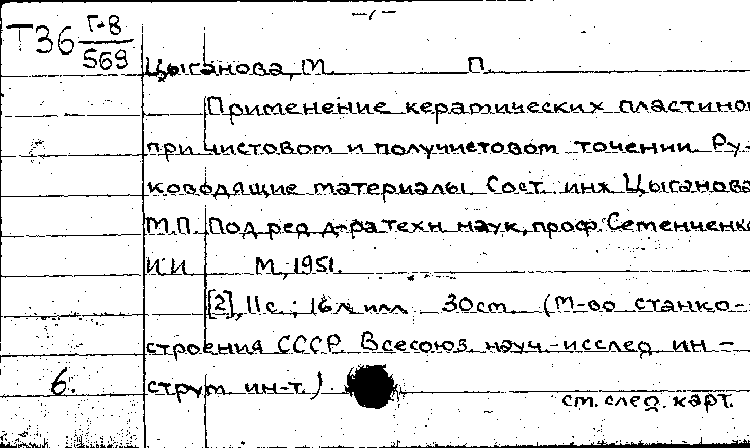 -1-
Т36 Г-8/569
Цыганова, М. П.
Применение керамических пластинок
при чистовом и получистовом точении. Ру-
ководящие материалы. Сост. инж. Цыганова
М.П. Под ред. д-ра техн. наук, проф. Семенченко
И.И. М., 1951.
[2], 11 с.; 16 л. илл. 30 см. (М-во станко-
строения СССР. Всесоюз. науч.-исслед. ин-
струм. ин-т.)
6.
см. след. карт.